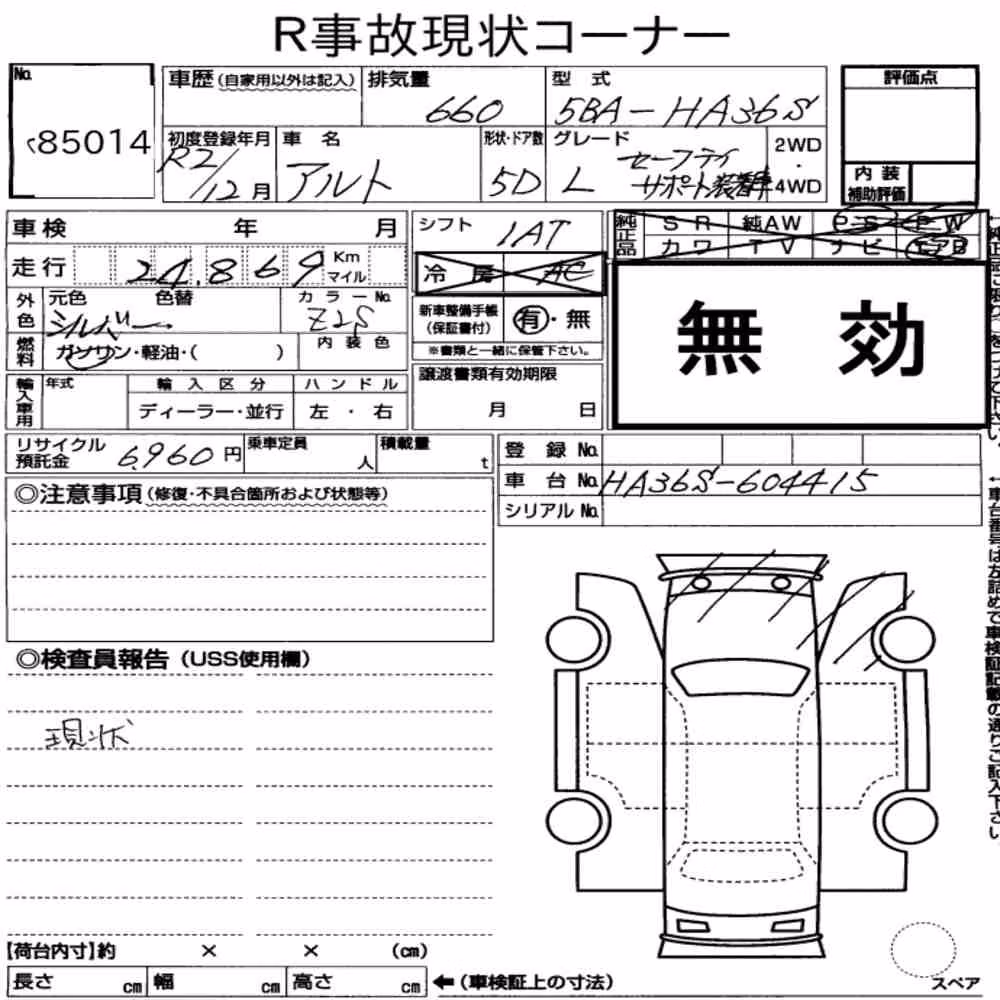 R事故現状コーナー
No.
85014
車歴(自家用以外は記入)
排気量
660
型式
5BA-HA36S
評価点
初度登録年月
R2/12月
車名
アルト
形状・ドア数
5D
グレード
L セーフティ
サポート装着車
2WD
・
4WD
内装
補助評価
車検 年 月
シフト
IAT
純正品
SR 純AW PS PW
カワ TV ナビ エアB
走行
24,869
Km
マイル
冷房 AC
無効
外色
元色 色替
シルバー
カラーNo.
Z2S
新車整備手帳
(保証書付)
有・無
※書類と一緒に保管下さい。
燃料
ガソリン・軽油・( )
内装色
輸入車用
年式
輸入区分
ハンドル
ディーラー・並行
左・右
譲渡書類有効期限
月 日
リサイクル
預託金
6,960円
乗車定員
人
積載量
t
登録No.
車台No.
HA36S-604415
シリアルNo.
◎注意事項(修復・不具合箇所および状態等)
◎検査員報告(USS使用欄)
現状
【荷台内寸】約 × × (cm)
長さ cm
幅 cm
高さ cm
←(車検証上の寸法)
スペア
←車台番号は左詰めで車検証記載の通りご記入下さい。